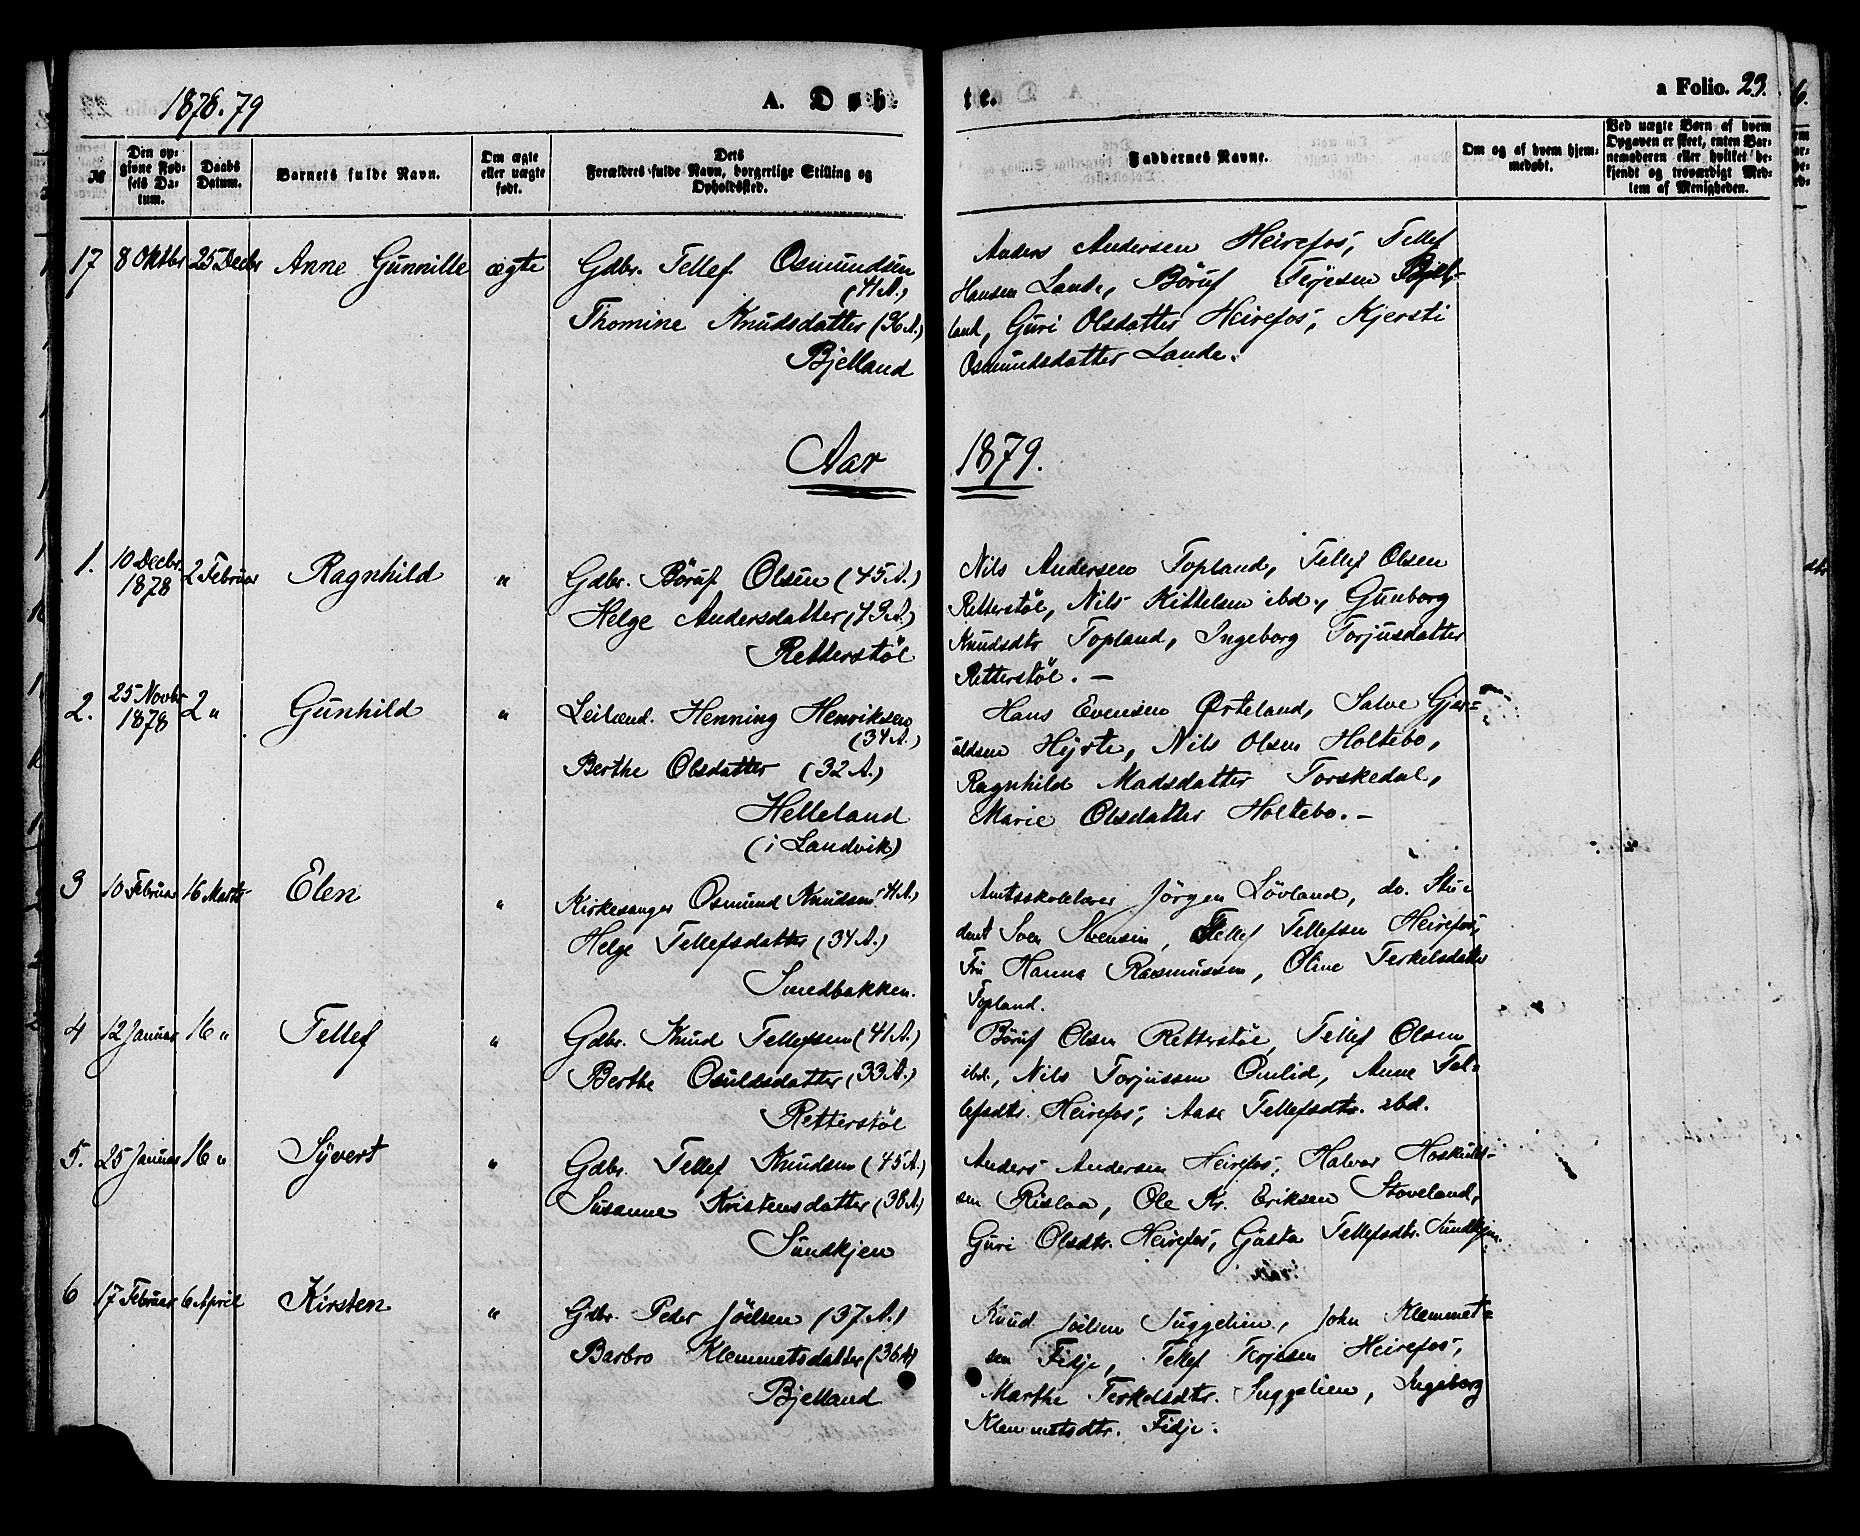 1878.79
A. Døb-
te.
a Folio. 23.
№
Den op-
givne Fød-
sels Da-
tum.
Daabs
Datum.
Barnets fulde Navn.
Om ægte
eller uægte
født.
Dets
Forældres fulde Navn, borgerlige Stilling og
Opholdssted.
Faddernes Navne.
Om og af hvem hjem-
medøbt.
Ved uægte Børn af hvem
Opgaven er skeet, enten Bar-
nemoderen eller hvilket be-
kjendt og troværdigt Med-
lem af Menigheden.
17 8 Oktbr 25 Decbr Anne Gunnille ægte Gdbr. Tellef Osmundsen
(41 A.)
Thomine Knudsdatter (36 A.)
Bjelland
Anders Andersen Heirefos, Tellef
Hansen Lande, Böruf Terjesen Bjel-
land, Guri Olsdatter Heirefos, Kjersti
Osmundsdatter Lande.
Aar 1879.
1. 10 Decbr. 1878 2 Februar Ragnhild " Gdbr. Böruf Olsen (45 A.)
Helge Andersdatter (43 A.)
Retterstöl
Nils Andersen Topland, Tellef Olsen
Retterstöl, Nils Kittelsen ibd., Gunborg
Knudsdtr Topland, Ingeborg Torjusdatter
Retterstöl. —
2. 25 Novbr 1878 2 " Gunhild " Leilænd. Henning Henriksen
(34 A.)
Berthe Olsdatter (32 A.)
Helleland
(i Landvik)
Hans Evensen Örteland, Salve Gjer-
uldsen Hyrte, Nils Olsen Holtebo,
Ragnhild Madsdatter Torskedal,
Marie Olsdatter Holtebo. —
3 10 Februar 16 Marts Elen " Kirkesanger Osmund Knudsen (41 A.)
Helge Tellefsdatter (34 A.)
Smedbakken.
Amtsskolelærer Jörgen Lövland, do. Stu-
dent Sven Svensen, Tellef Tellefsen Heirefos,
Fru Hanna Rasmussen, Oline Terkelsdatter
Topland.
4 12 Januar 16 " Tellef " Gdbr. Knud Tellefsen (41 A.)
Berthe Osuldsdatter (33 A.)
Retterstöl
Böruf Olsen Retterstöl, Tellef Olsen
ibd., Nils Torjussen Omlid, Anne Tel-
lefsdtr. Heirefos, Aase Tellefsdtr. ibd.
5. 25 Januar 16 " Syvert " Gdbr. Tellef Knudsen (45 A.)
Susanne Kristensdatter (38 A.)
Sundkjen
Anders Andersen Heirefos, Halvor Hoskulds-
sen Rislaa, Ole Kr. Eriksen Stoveland,
Guri Olsdtr. Heirefos, Gusta Tellefsdtr. Sundkjen.
6 17 Februar 6 April Kirsten " Gdbr. Peder Jöelsen (37 A.)
Barbro Klemmetsdatter (36 A.)
Bjelland
Knud Jöelsen Suggelien, John Klemmet-
sen Fidje, Tellef Terjesen Heirefos,
Marthe Terkelsdtr. Suggelien, Ingeborg
Klemmetsdtr. Fidje.